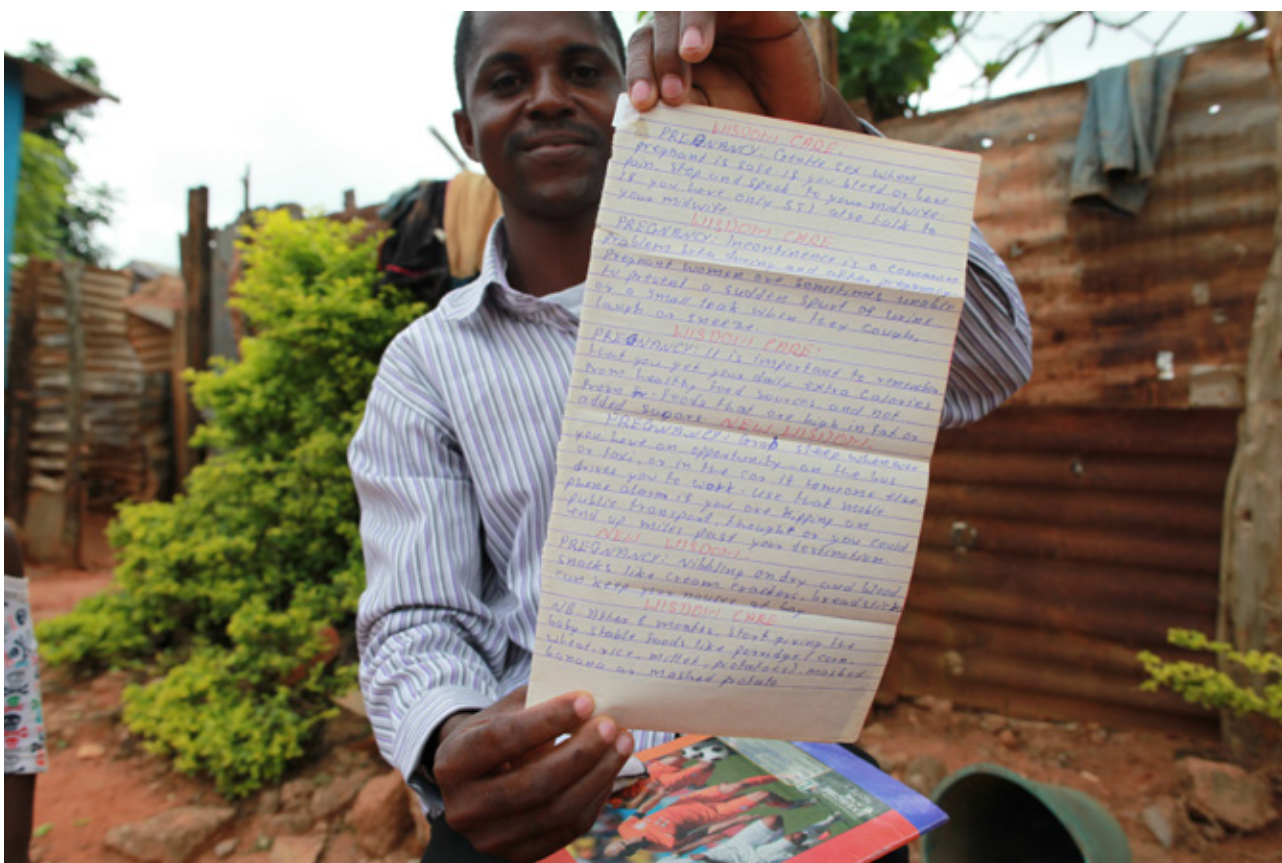 WISDOM CARE
PREGNANCY: Gentle sex when
pregnant is safe is you bleed or have
pain, stop and speak to your midwife
If you have only also talk to
your midwife.
WISDOM CARE
PREGNANCY: Incontinence is a common
problem both during and after pregnancy
Pregnant women are sometimes unable
to prevent a sudden spurt of urine
or a small leak when they cough,
laugh or sneeze.
WISDOM CARE:
PREGNANCY: It is important to remember
that you get your daily extra calories
from healthy food sources, and not
from foods that are high in fat or
added sugars NEW WISDOM
PREGNANCY: Grab sleep whenever
you have an opportunity - on the bus
or taxi, or in the car if someone else
drives you to work. Use that mobile
phone alarm if you are kipping on
public transport, though or you could
end up miles past your destination.
NEW WISDOM
PREGNANCY: Nibbling on dry and
snacks like cream crackers, breadsticks
can keep your at bay
WISDOM CARE
NB. After 6 months, start giving the
baby stable foods like porridge (corn,
wheat, rice, millet, potatoes) mashed
banana or mashed potato